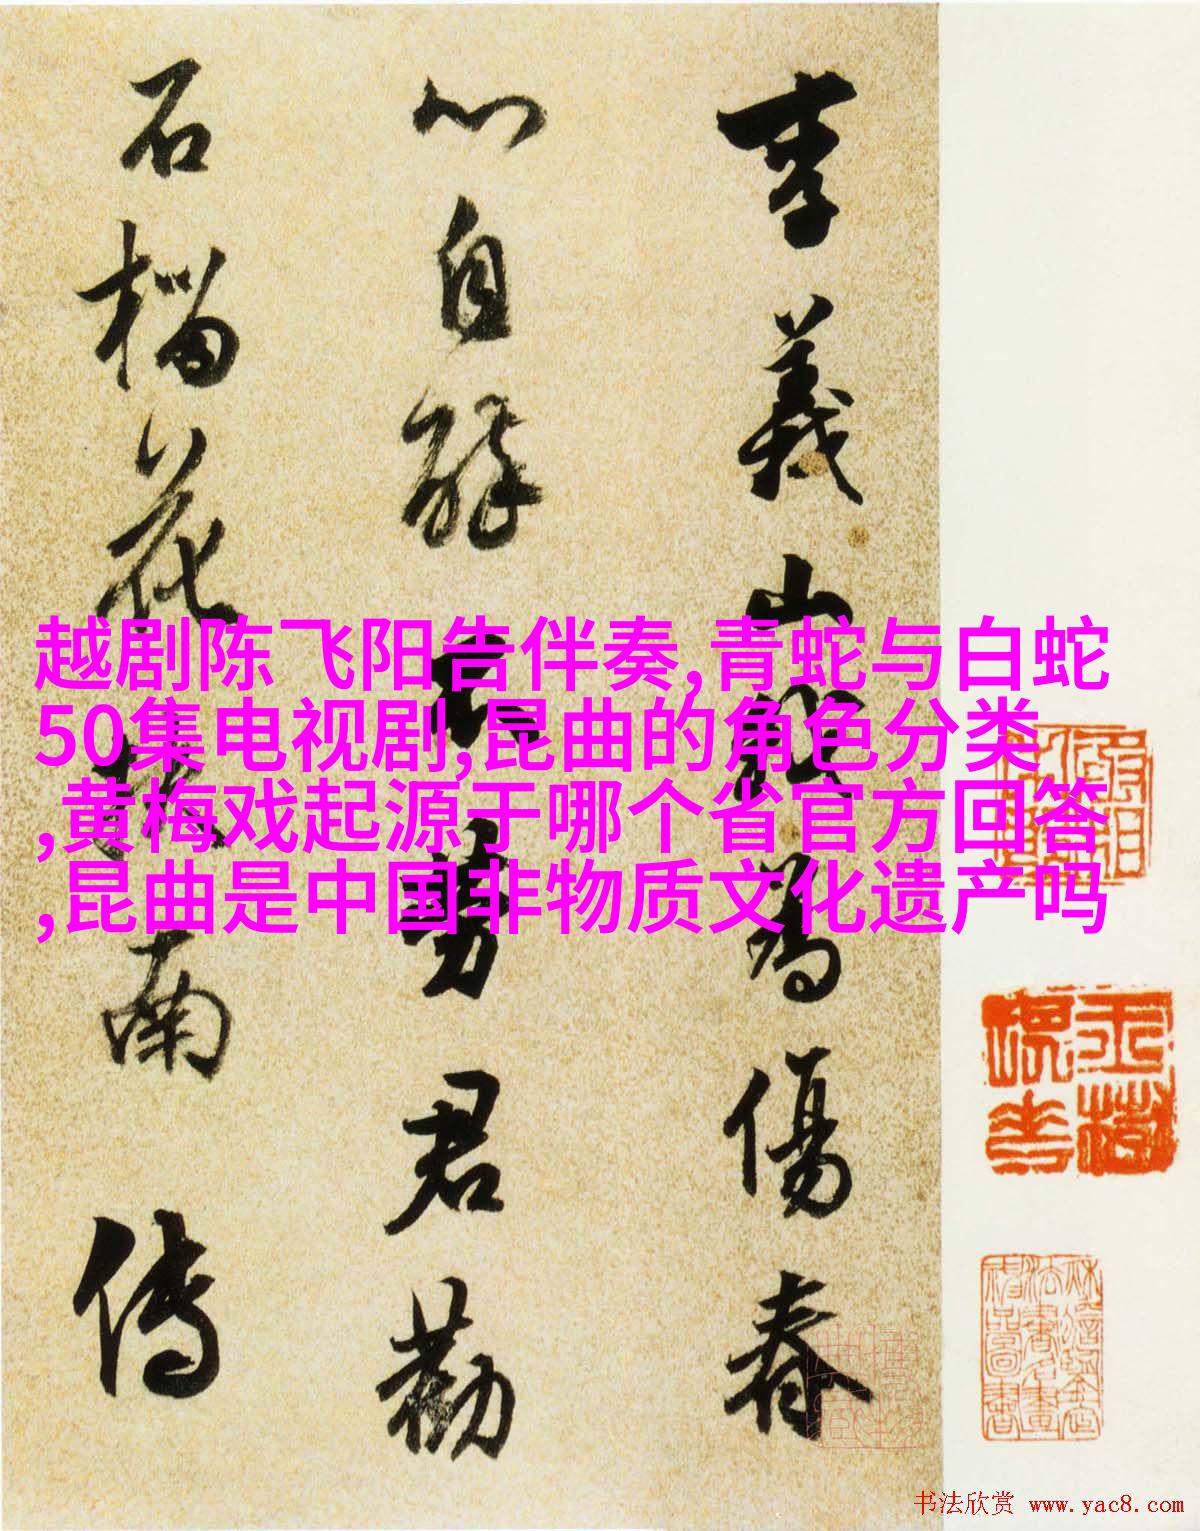 越剧陈飞阳告伴奏,青蛇与白蛇
50集电视剧,昆曲的角色分类
,黄梅戏起源于哪个省官方回答
,昆曲是中国非物质文化遗产吗
李義山為傷春
心自醉不勞君勸
石榴花南傳
书法欣赏 www.yac8.com